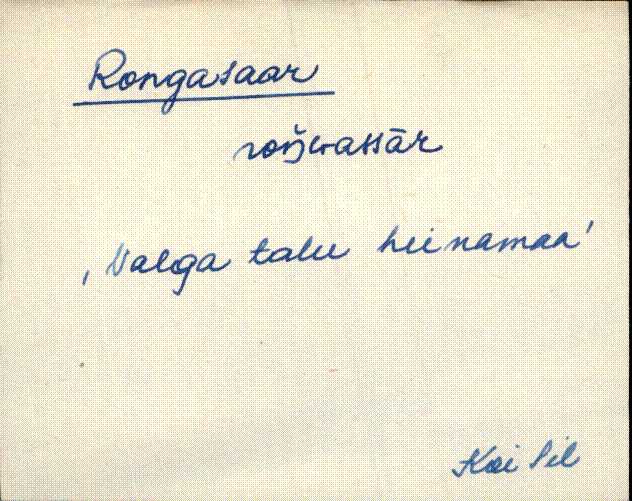 Rongasaar
roŋ̆ɢassār
‚Valga talu heinamaa’
Kai Sil